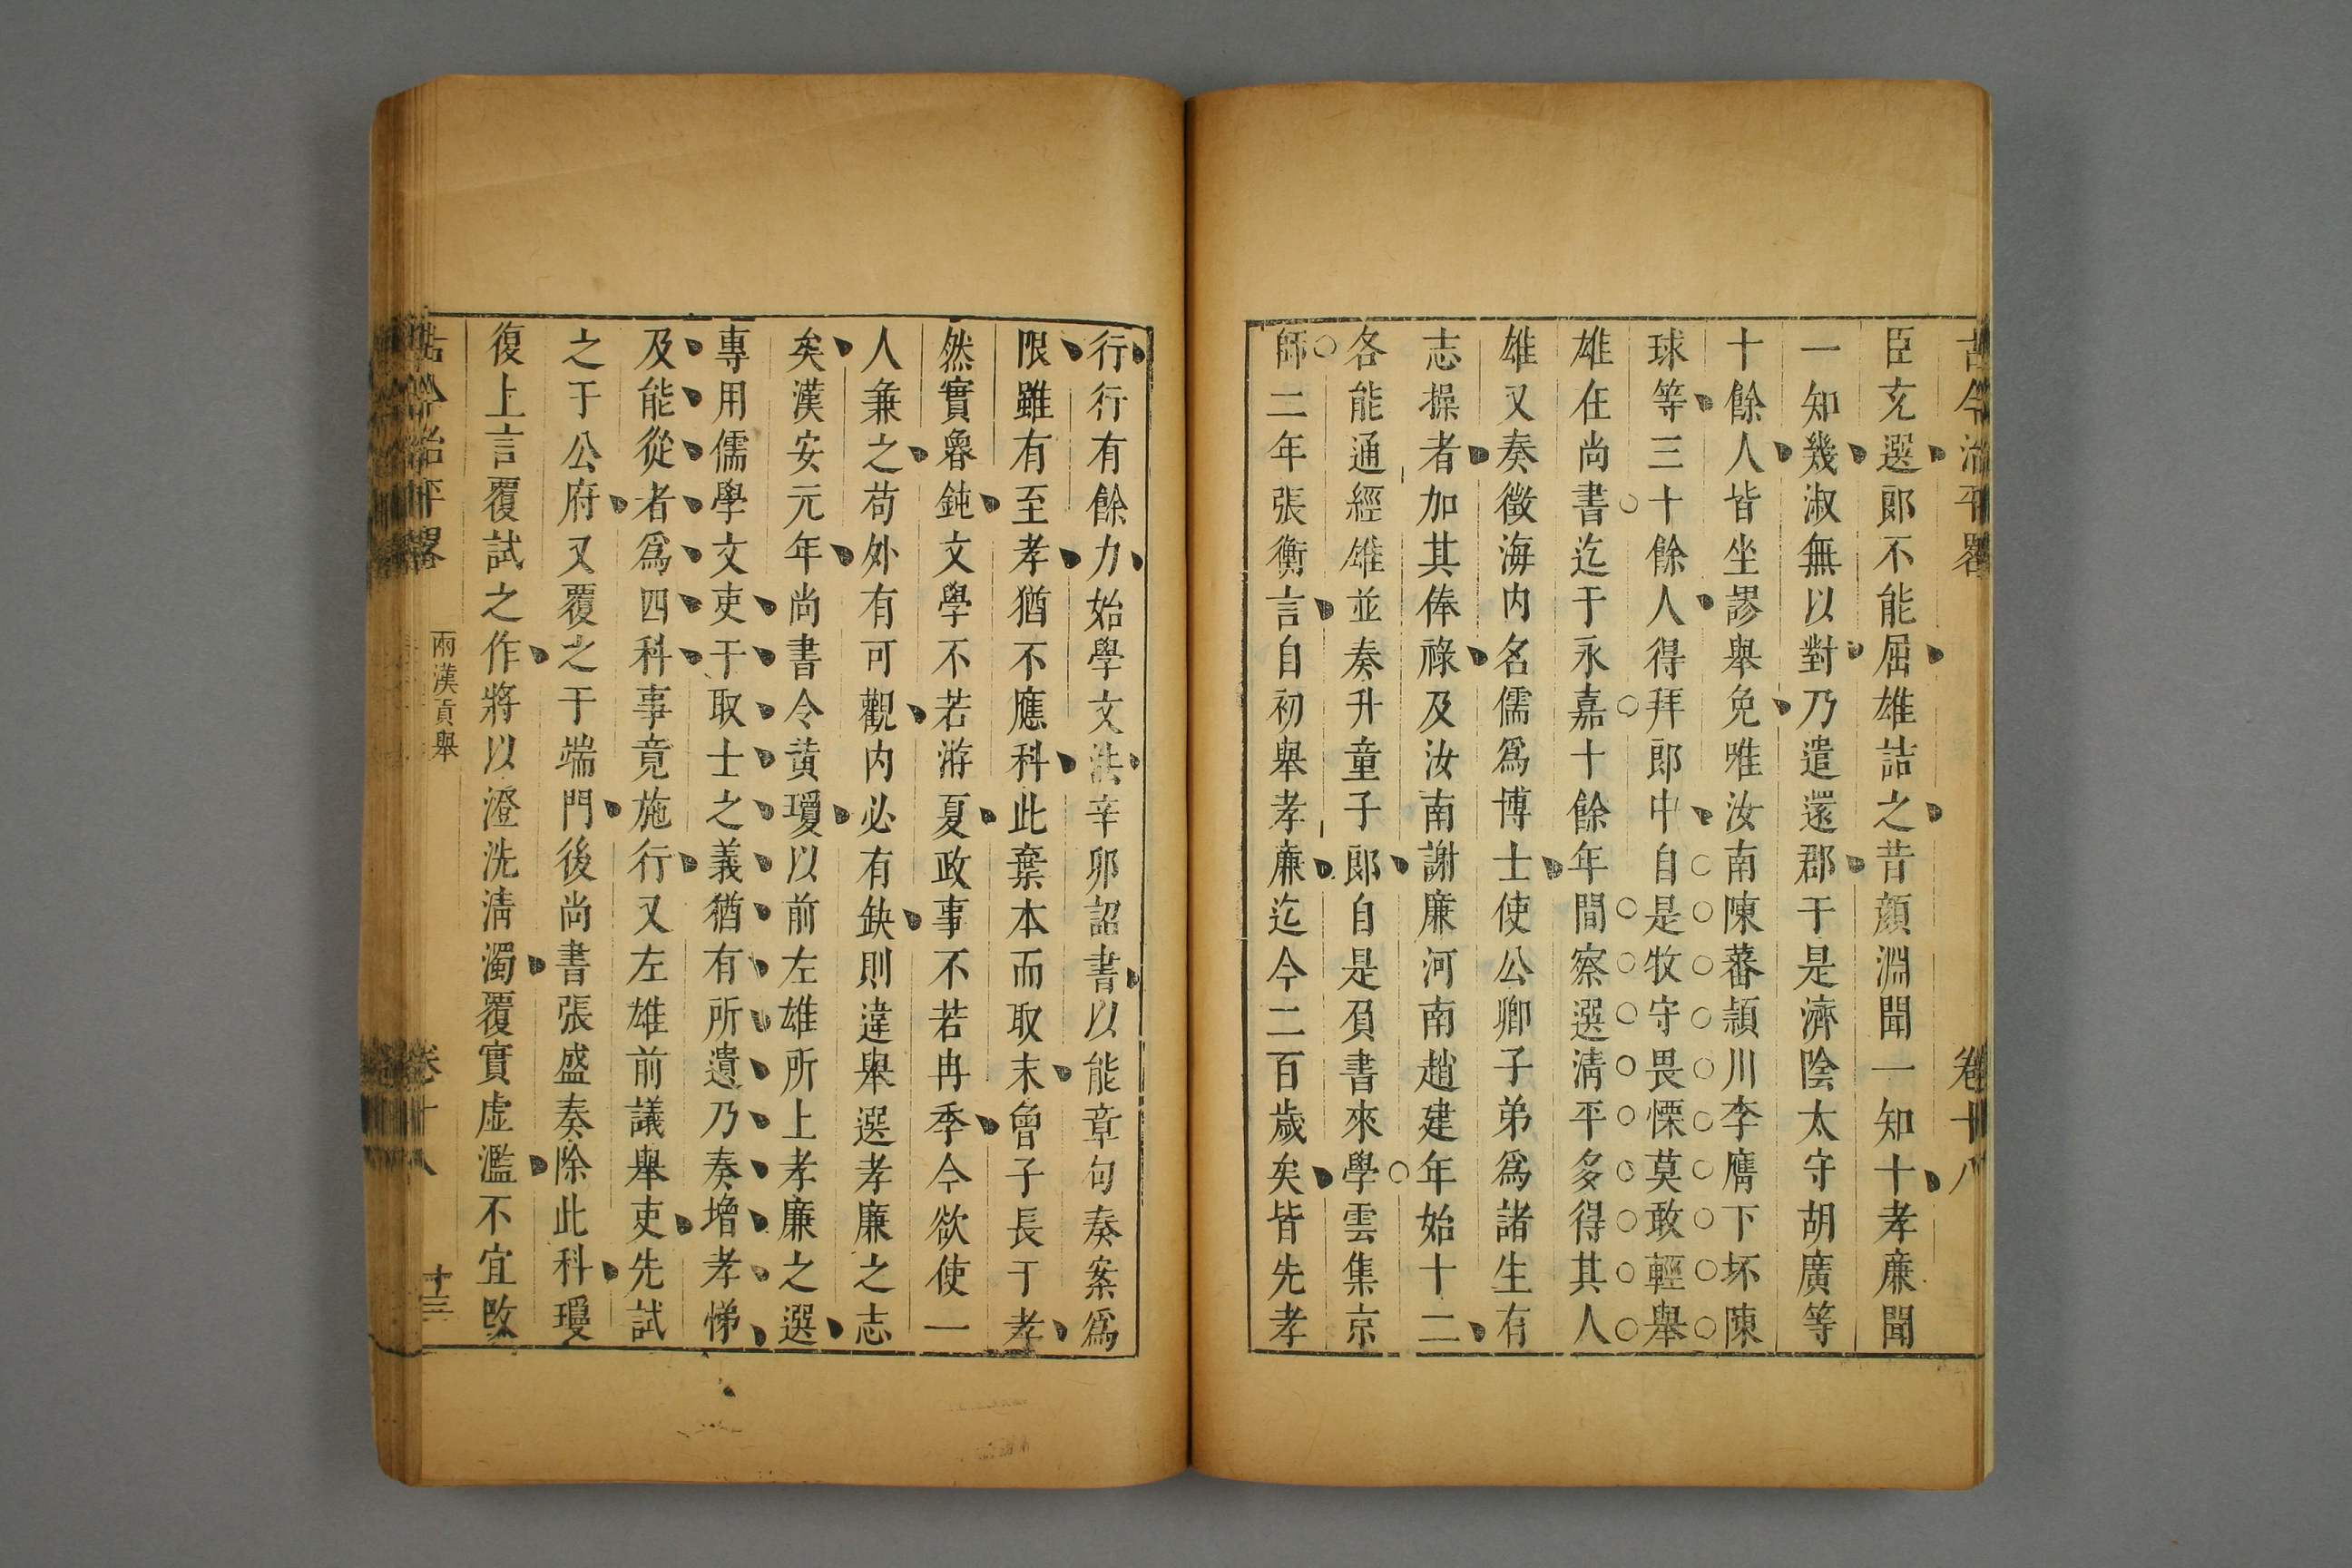 古今治平畧 卷十八
臣充選郎不能屈雄詰之昔顔淵聞一知十孝亷聞
一知幾淑無以對乃遣還郡于是濟陰太守胡廣等
十餘人皆坐謬舉免唯汝南陳蕃頴川李膺下坯陳
球等三十餘人得拜郎中自是牧守畏慄莫敢輕舉
雄在尚書迄于永嘉十餘年間察選淸平多得其人
雄又奏徵海内名儒爲博士使公卿子弟爲諸生有
志操者加其俸祿及汝南謝廉河南趙建年始十二
各能通經雄並奏升童子郎自是負書來學雲集京
師二年張衡言自初舉孝亷迄今二百歲矣皆先孝
行行有餘力始學文法辛卯詔書以能章句奏案爲
限雖有至孝猶不應科此棄本而取末曾子長于孝
然實魯鈍文學不若游夏政事不若冉季今欲使一
人兼之苟外有可觀内必有缺則違舉選孝廉之志
矣漢安元年尚書令黄瓊以前左雄所上孝廉之選
專用儒學文吏于取士之義猶有所遺乃奏增孝悌
及能從者爲四科事竟施行又左雄前議舉吏先試
之于公府又覆之于端門後尚書張盛奏除此科瓊
復上言覆試之作將以澄洗淸濁覆實虚濫不宜改
古今治平畧 兩漢貢舉 卷十八 十三